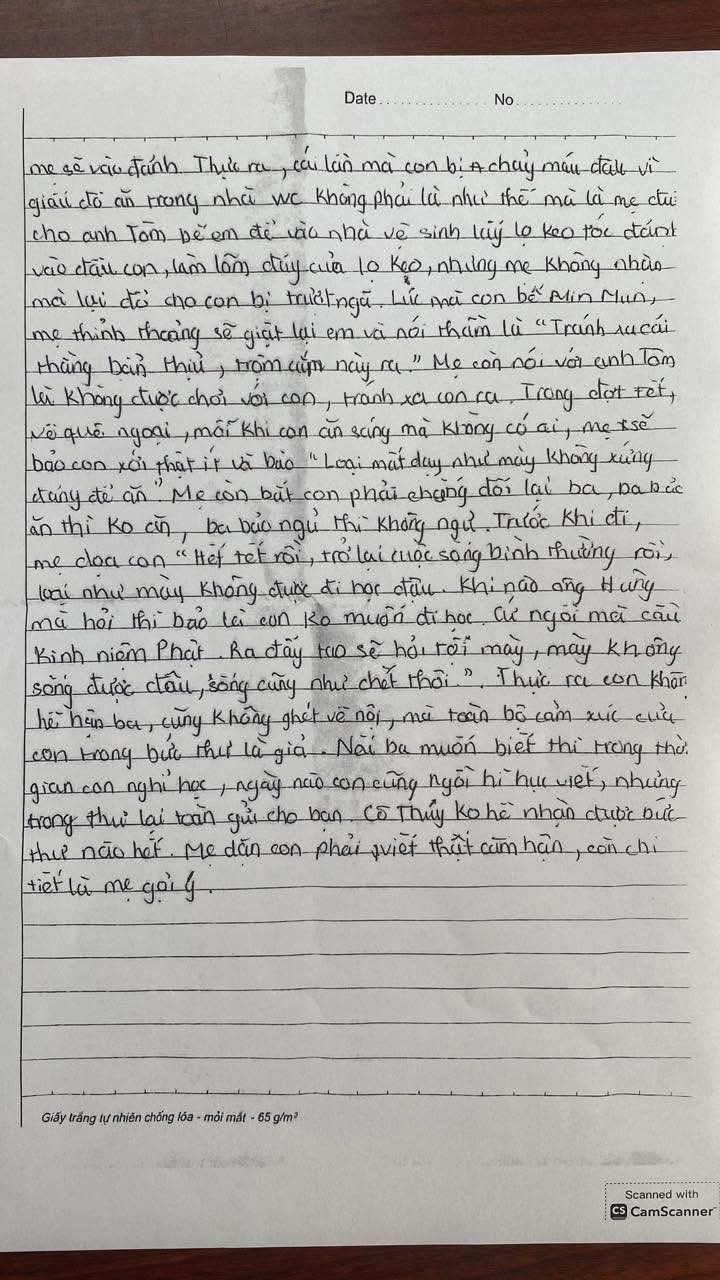 Date............... No...............
mẹ sẽ vào đánh. Thực ra, cái lần mà con bị chảy máu đầu vì
giấu đồ ăn trong nhà wc không phải là như thế mà là mẹ đưa
cho anh Tôm bế em để vào nhà vệ sinh lấy lọ keo tóc đánh
vào đầu con, làm lõm đáy của lọ keo, nhưng mẹ không nhận
mà lại đổ cho con bị trượt ngã. Lúc mà con bế Min Mun,
mẹ thỉnh thoảng sẽ giật lại em và nói thầm là "Tránh xa cái
thằng bẩn thỉu, trộm cắp này ra." Mẹ còn nói với anh Tôm
là không được chơi với con, tránh xa con ra. Trong đợt tết,
về quê ngoại, mỗi khi con ăn sáng mà không có ai, mẹ sẽ
bảo con xới thật ít và bảo "Loại mất dạy như mày không xứng
đáng để ăn". Mẹ còn bắt con phải chống đối lại ba, ba bảo
ăn thì ko ăn, ba bảo ngủ thì không ngủ. Trước khi đi,
mẹ dọa con "Hết tết rồi, trở lại cuộc sống bình thường rồi,
loại như mày không được đi học đâu. Khi nào ông Hưng
mà hỏi thì bảo là con ko muốn đi học. Cứ ngồi mà cầu
kinh niệm Phật. Ra đấy tao sẽ hỏi tội mày, mày không
sống được đâu, sống cũng như chết thôi.". Thực ra con không
hề hận ba, cũng không ghét về nội, mà toàn bộ cảm xúc của
con trong bức thư là giả. Nói ba muốn biết thì trong thời
gian con nghỉ học, ngày nào con cũng ngồi hì hục viết, nhưng
trong thư lại toàn gửi cho bạn. Cô Thủy ko hề nhận được bức
thư nào hết. Mẹ dặn con phải viết thật căm hận, còn chi
tiết là mẹ gợi ý.
Giấy trắng tự nhiên chống lóa - mỏi mắt - 65 g/m²
Scanned with
CS CamScanner